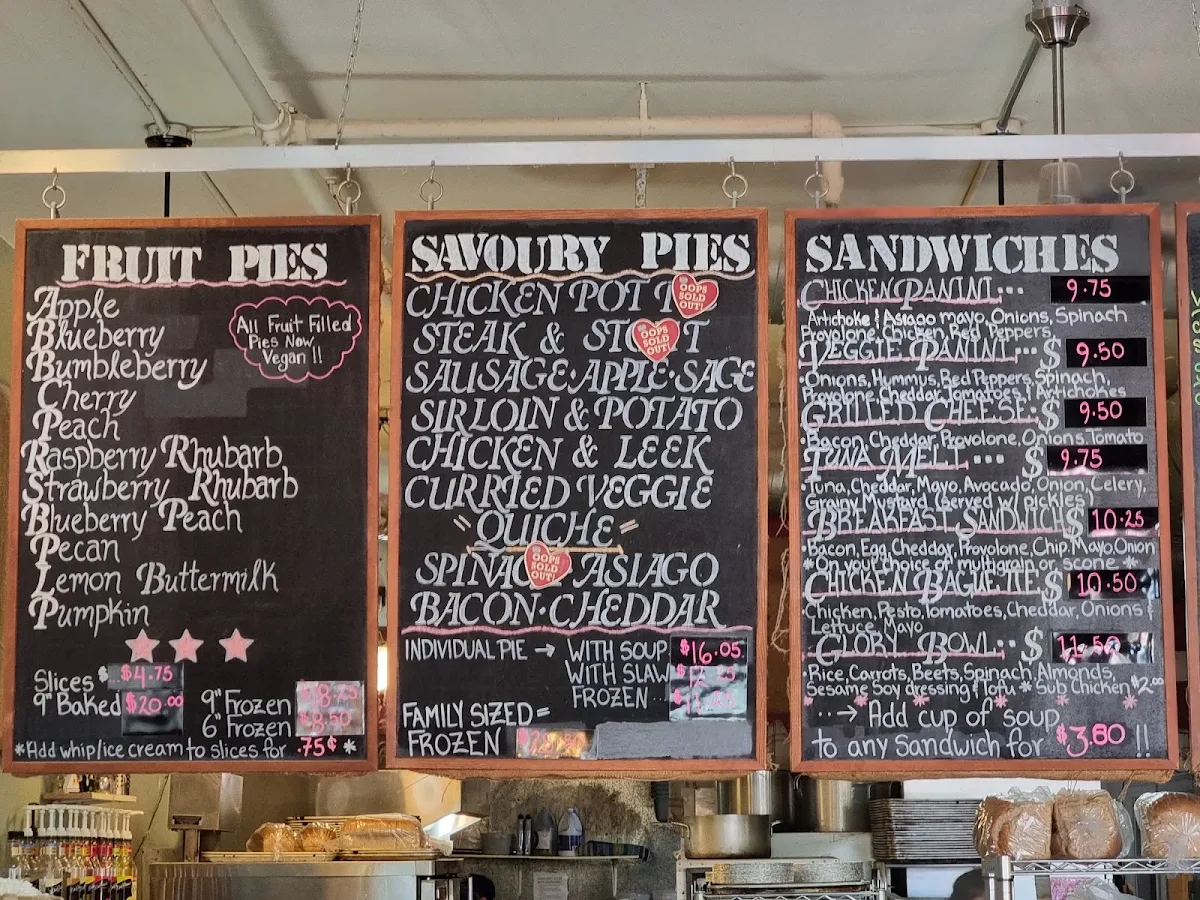 FRUIT PIES
Apple
Blueberry
Bumbleberry
Cherry
Peach
Raspberry Rhubarb
Strawberry Rhubarb
Blueberry Peach
Pecan
Lemon Buttermilk
Pumpkin
All Fruit Filled
Pies Now
Vegan !!
Slices $ $4.75
9" Baked $20.00
9" Frozen
6" Frozen $8.50
*Add whip/ice cream to slices for .75¢ *
SAVOURY PIES
CHICKEN POT
OOPS SOLD OUT!
STEAK &
OOPS SOLD OUT!
SAUSAGE·APPLE·SAGE
SIRLOIN & POTATO
CHICKEN & LEEK
CURRIED VEGGIE
QUICHE
SPINAC ASIAGO
OOPS SOLD OUT!
BACON·CHEDDAR
INDIVIDUAL PIE → WITH SOUP $16.05
WITH SLAW
FROZEN..
FAMILY SIZED =
FROZEN
SANDWICHES
CHICKEN PANINI... 9.75
Artichoke & Asiago mayo, Onions, Spinach
Provolone, Chicken, Red Peppers,
VEGGIE PANINI... $ 9.50
·Onions, Hummus, Red Peppers, Spinach,
Provolone, Cheddar, Tomatoes, & Artichokes
GRILLED CHEESE: $ 9.50
·Bacon, Cheddar, Provolone, Onions, Tomato
TUNA MELT ... $ 9.75
Tuna, Cheddar, Mayo, Avocado, Onion, Celery,
Grainy Mustard (served w/ pickles)
BREAKFAST SANDWICH $ 10.25
·Bacon, Egg, Cheddar, Provolone, Chip. Mayo, Onion
*On your choice of multigrain or scone *
CHICKEN BAGUETTE $ 10.50
·Chicken, Pesto, Tomatoes, Cheddar, Onions &
Lettuce, Mayo
GLORY BOWL:: $ 11.50
·Rice, Carrots, Beets, Spinach, Almonds,
Sesame Soy dressing & Tofu * Sub Chicken $2.00
··→ Add cup of soup
to any Sandwich for $3.80 !!